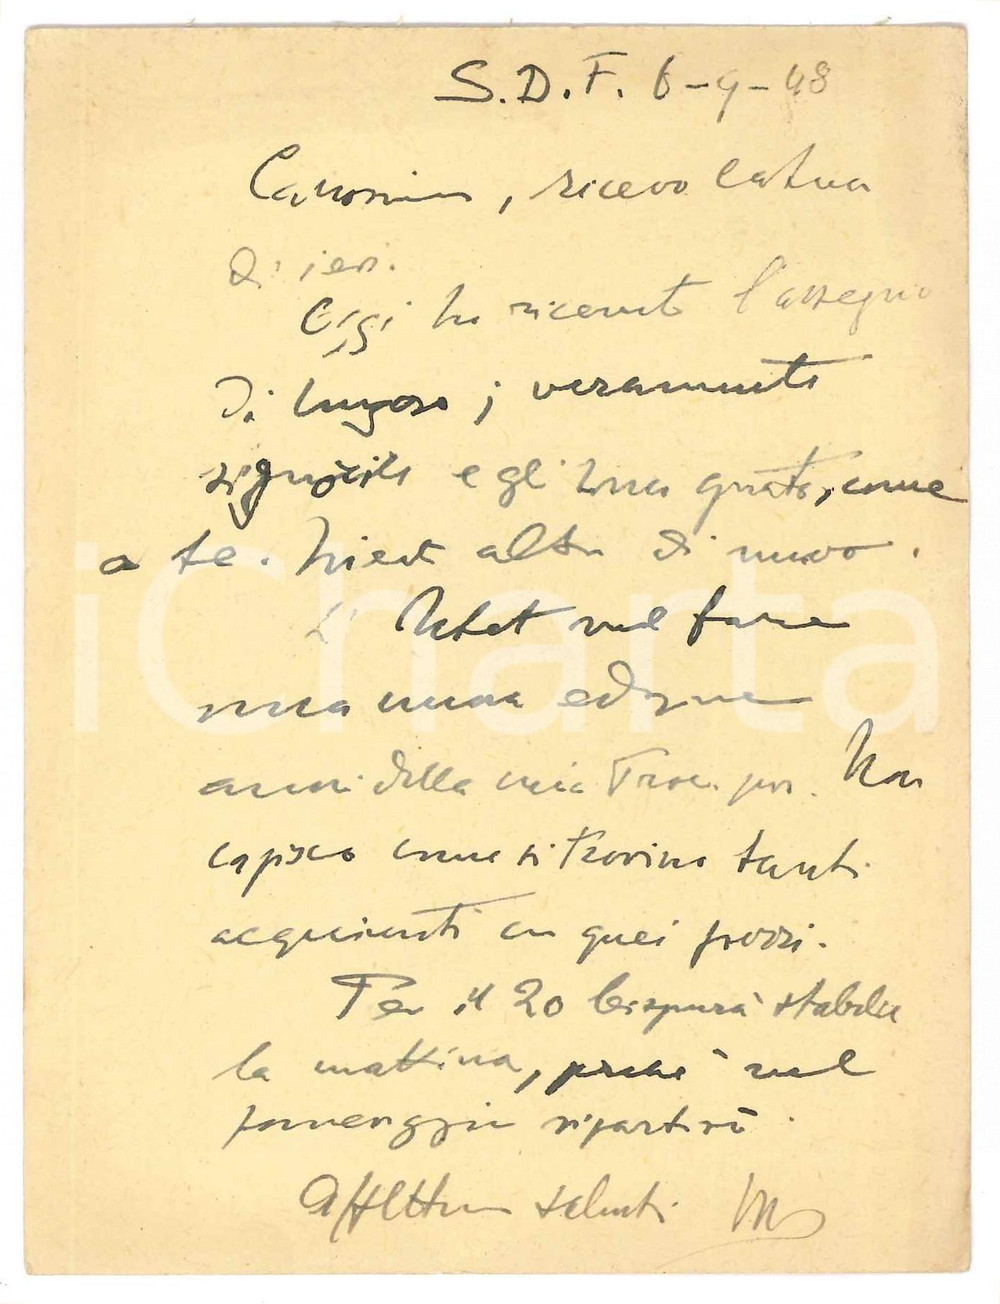 S.D.F. 6-9-48
Carissimo, ricevo la tua
di ieri.
Oggi ho ricevuto l'assegno
di ; veramente
signorile e gli sono grato, come
a te. Nient'altro di nuovo.
L'Utet vuol fare
una nuova edizione
della mia Proc. pen. Non
capisco come si trovino tanti
acquirenti con quei prezzi.
Per il 20 bisognerà stabilire
la mattina, perché nel
pomeriggio ripartirò.
Affettuosi saluti
iCharta